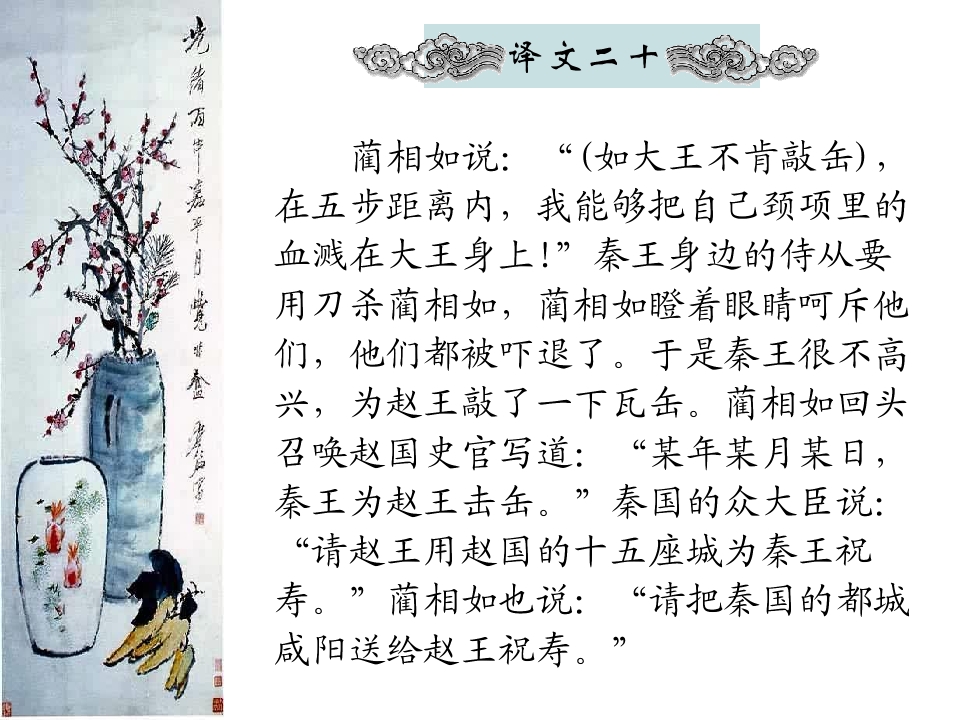 译文二十
蔺相如说：“(如大王不肯敲缶)，
在五步距离内，我能够把自己颈项里的
血溅在大王身上!”秦王身边的侍从要
用刀杀蔺相如，蔺相如瞪着眼睛呵斥他
们，他们都被吓退了。于是秦王很不高
兴，为赵王敲了一下瓦缶。蔺相如回头
召唤赵国史官写道：“某年某月某日，
秦王为赵王击缶。”秦国的众大臣说：
“请赵王用赵国的十五座城为秦王祝
寿。”蔺相如也说：“请把秦国的都城
咸阳送给赵王祝寿。”